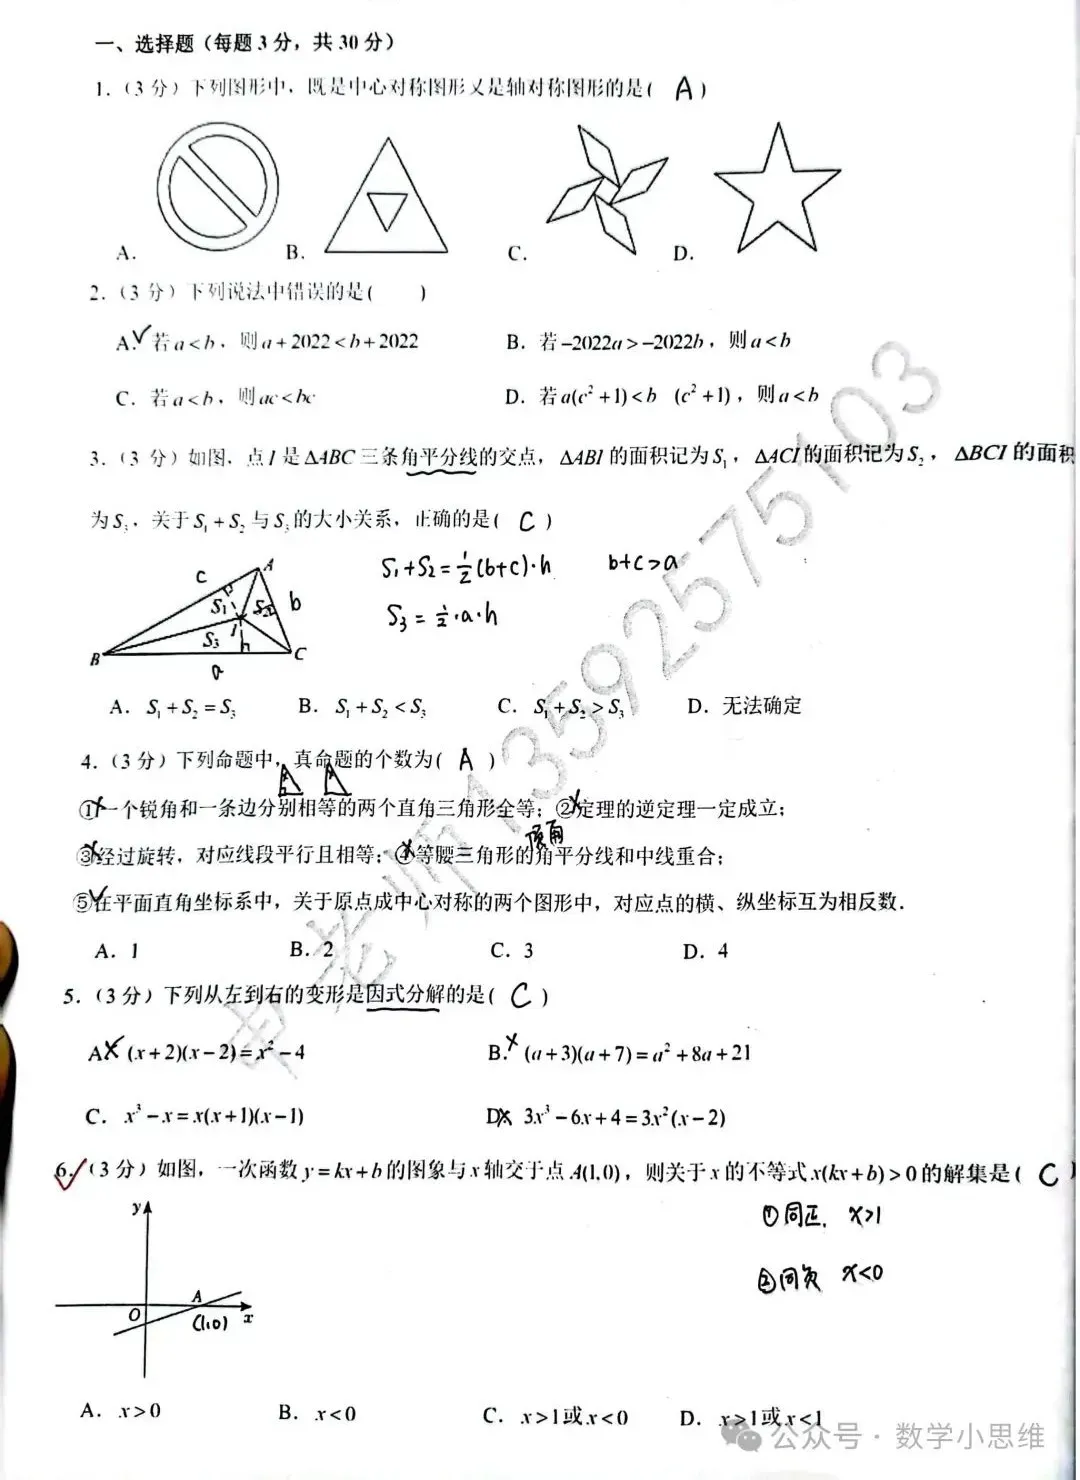 一、选择题（每题3分，共30分）
1.（3分）下列图形中，既是中心对称图形又是轴对称图形的是( A )
A. B. C. D.
2.（3分）下列说法中错误的是( )
A.✓若a<b，则a+2022<b+2022 B. 若-2022a>-2022b，则a<b
C. 若a<b，则ac<bc D. 若a(c²+1)<b (c²+1)，则a<b
3.（3分）如图，点I是△ABC三条角平分线的交点，△ABI的面积记为S₁，△ACI的面积记为S₂，△BCI的面积
为S₃，关于S₁+S₂与S₃的大小关系，正确的是( C )
S₁+S₂=½(b+c)·h b+c>a
S₃=½·a·h
A c S₁ S₂ b I S₃ h B C a
A. S₁+S₂=S₃ B. S₁+S₂<S₃ C. S₁+S₂>S₃ D. 无法确定
4.（3分）下列命题中，真命题的个数为( A )
①×一个锐角和一条边分别相等的两个直角三角形全等；②×定理的逆定理一定成立；
顶角
③×经过旋转，对应线段平行且相等；④×等腰三角形的角平分线和中线重合；
⑤✓在平面直角坐标系中，关于原点成中心对称的两个图形中，对应点的横、纵坐标互为相反数．
A. 1 B. 2 C. 3 D. 4
5.（3分）下列从左到右的变形是因式分解的是( C )
A.× (x+2)(x-2)=x²-4 B.× (a+3)(a+7)=a²+8a+21
C. x³-x=x(x+1)(x-1) D.× 3x³-6x+4=3x²(x-2)
6.✓（3分）如图，一次函数y=kx+b的图象与x轴交于点A(1,0)，则关于x的不等式x(kx+b)>0的解集是( C )
①同正. x>1
②同负 x<0
y A O (1,0) x
A. x>0 B. x<0 C. x>1或x<0 D. x>1或x<1
申老师13592575103
公众号·数学小思维